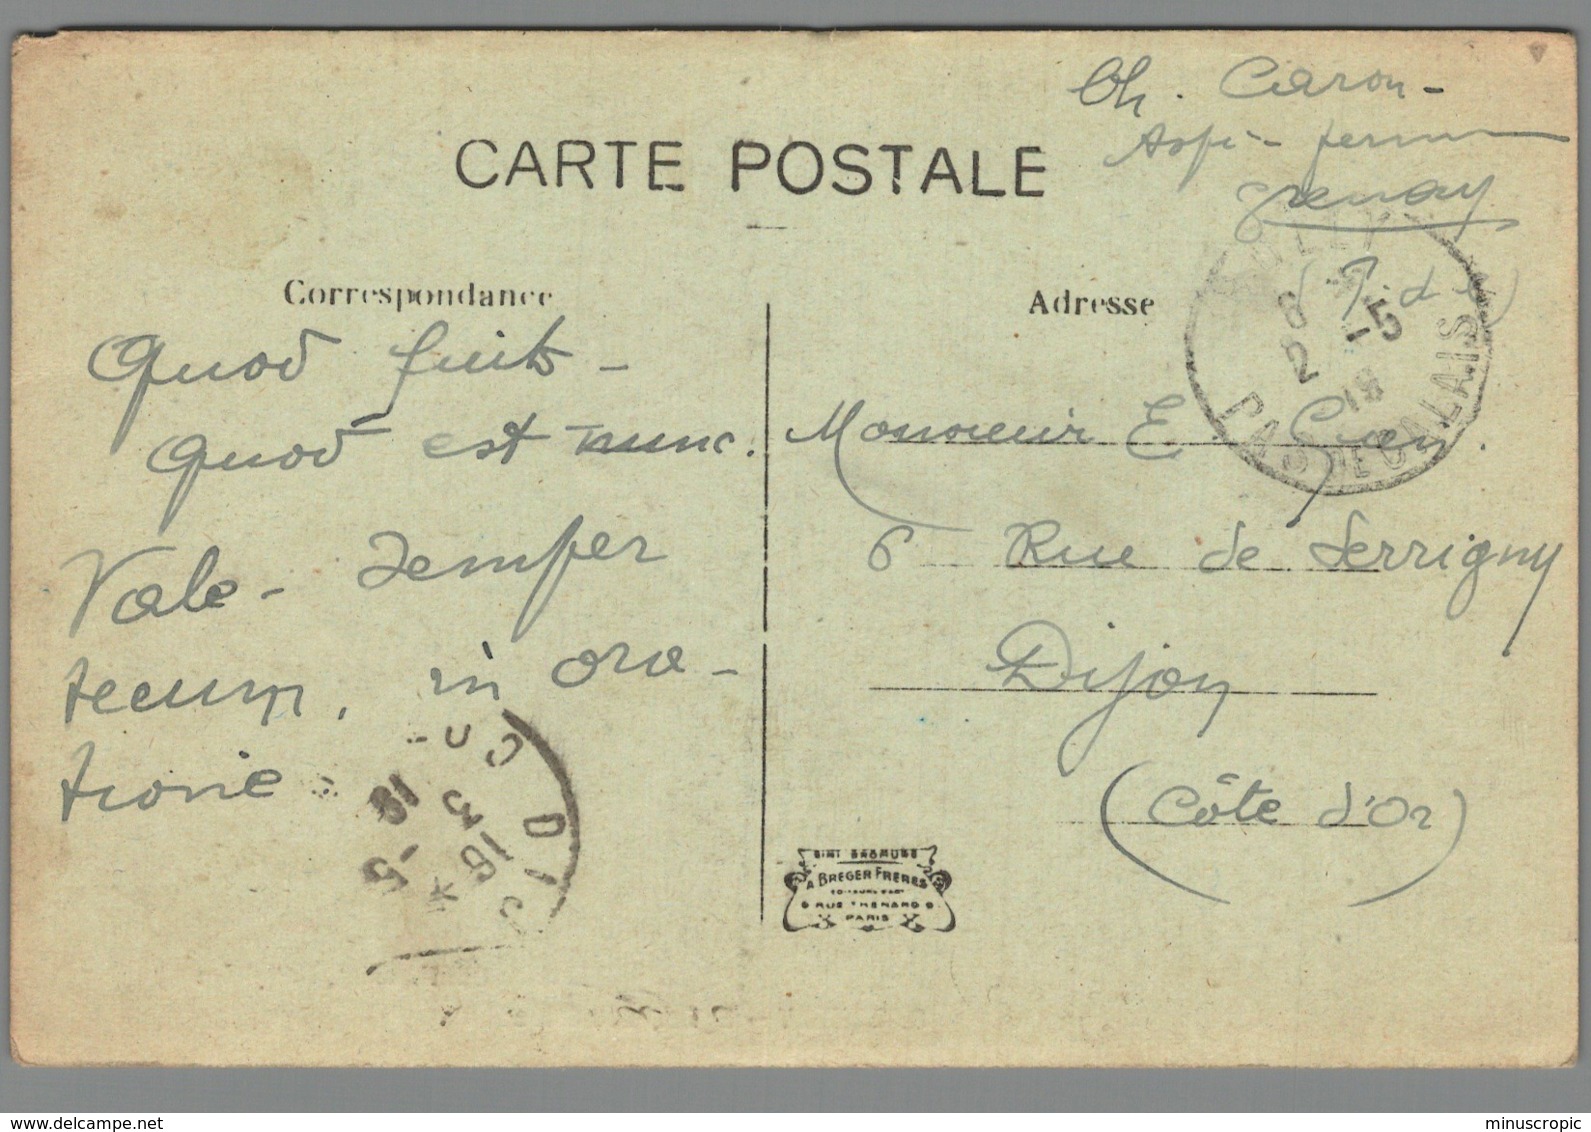 Ch. Caron -
Aspi - ferm
Grenay
(P. de C)
CARTE POSTALE
Correspondance
Adresse
Quod fuit -
Quod est nunc.
Vale - semper
tecum, in ora-
tione
Monsieur E. Gran
6 Rue de Serrigny
Dijon
(Côte d'Or)
BULLY
8
2 -5
19
PAS DE CALAIS
16
3 -5
19
A BREGER FRERES
9 RUE THENARD 9
PARIS
www.delcampe.net
minuscropic